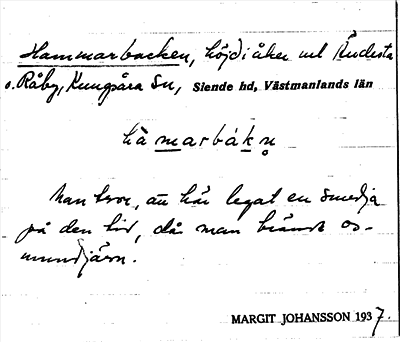 Hammarbacken, höjd i åker vid Ändesta
o. Råby, Kungsåra Sn, Siende hd, Västmanlands län
hàmarbák̥n̥
Man tror, att här legat en smedja
på den tid, då man brände os-
mundjärn.
MARGIT JOHANSSON 1937.